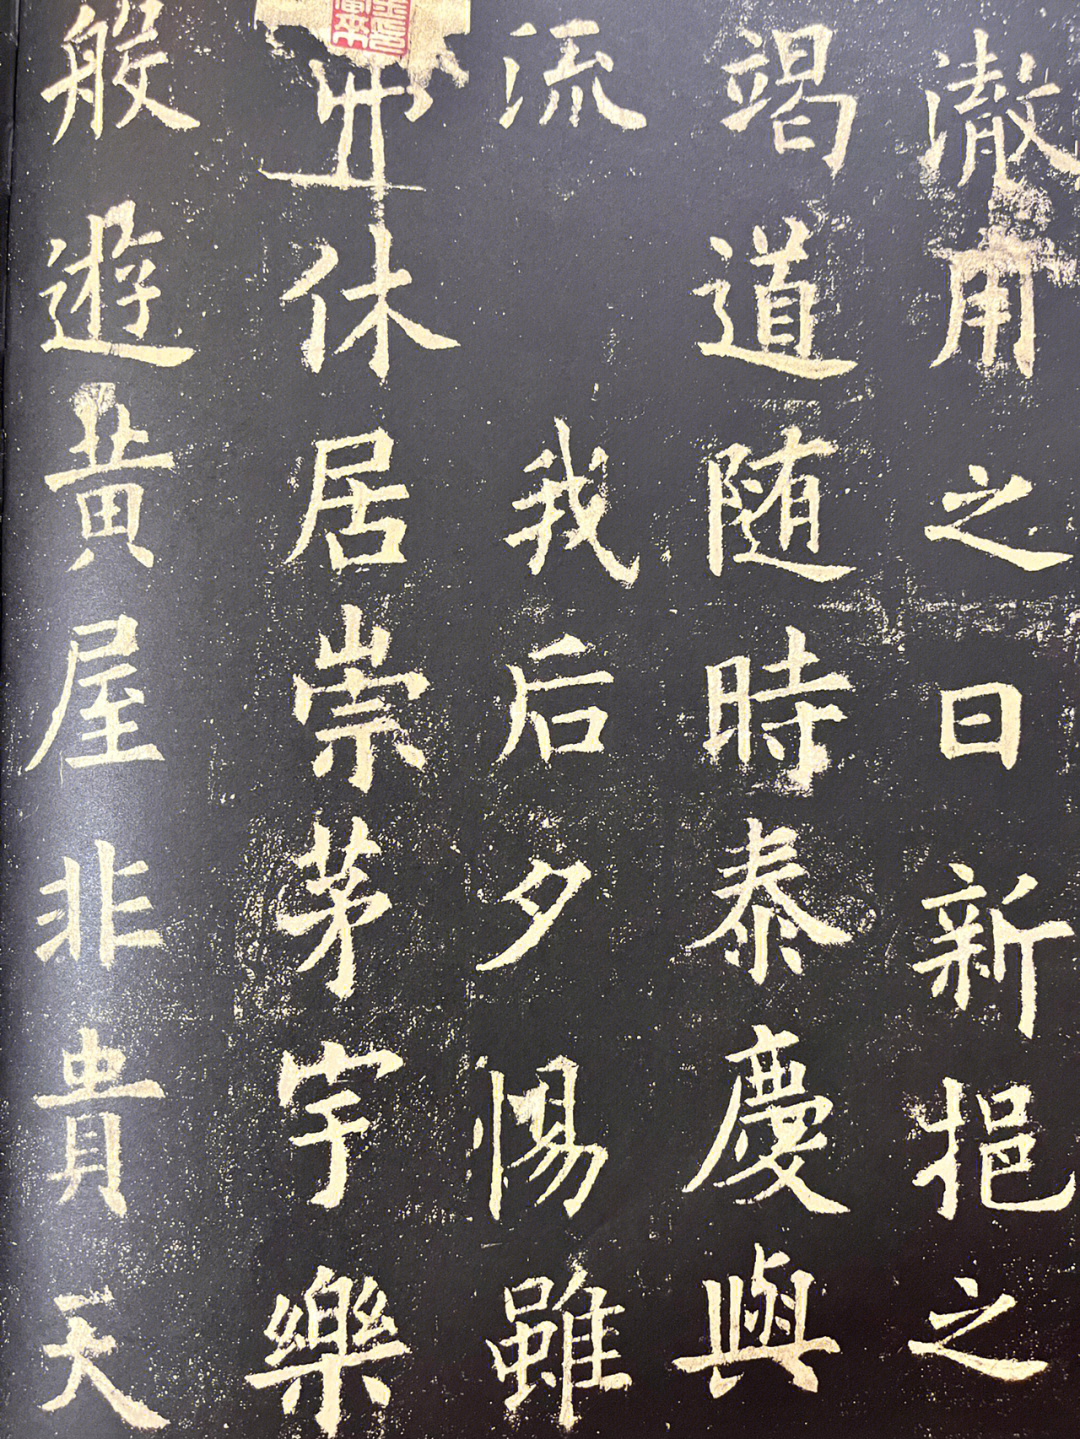 澈用之日新挹之
竭道随時泰慶與
流 我后夕惕雖
休居崇茅宇樂
般遊黄屋非貴天